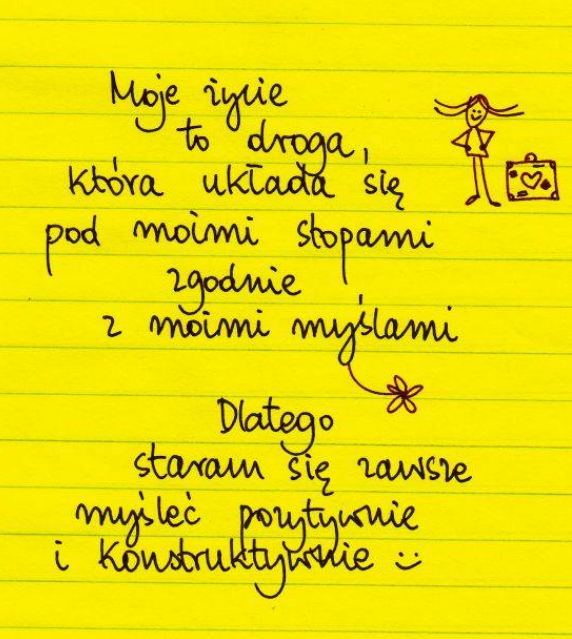 Moje życie
to droga,
która układa się
pod moimi stopami
zgodnie
z moimi myślami
Dlatego
staram się zawsze
myśleć pozytywnie
i konstruktywnie :)